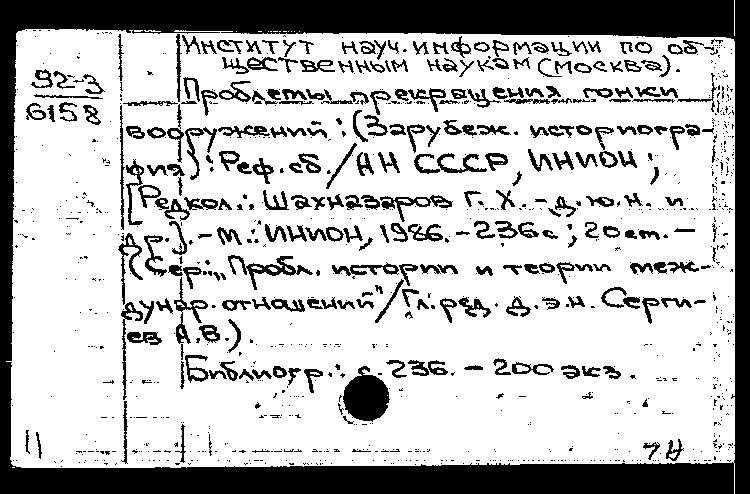 Институт науч. информации по об-
щественным наукам (Москва).
92-3
6158
Проблемы прекращения гонки
вооружений : (Зарубеж. историогра-
фия) : Реф. сб. / АН СССР, ИНИОН ;
[Редкол.: Шахназаров Г. Х. - д. ю. н. и
др.]. - М.: ИНИОН, 1986. - 236 с ; 20 см. -
(Сер.: "Пробл. истории и теории меж-
дунар. отношений" / Гл. ред. д. э. н. Серги-
ев А.В.).
Библиогр.: с. 236. - 200 экз.
11